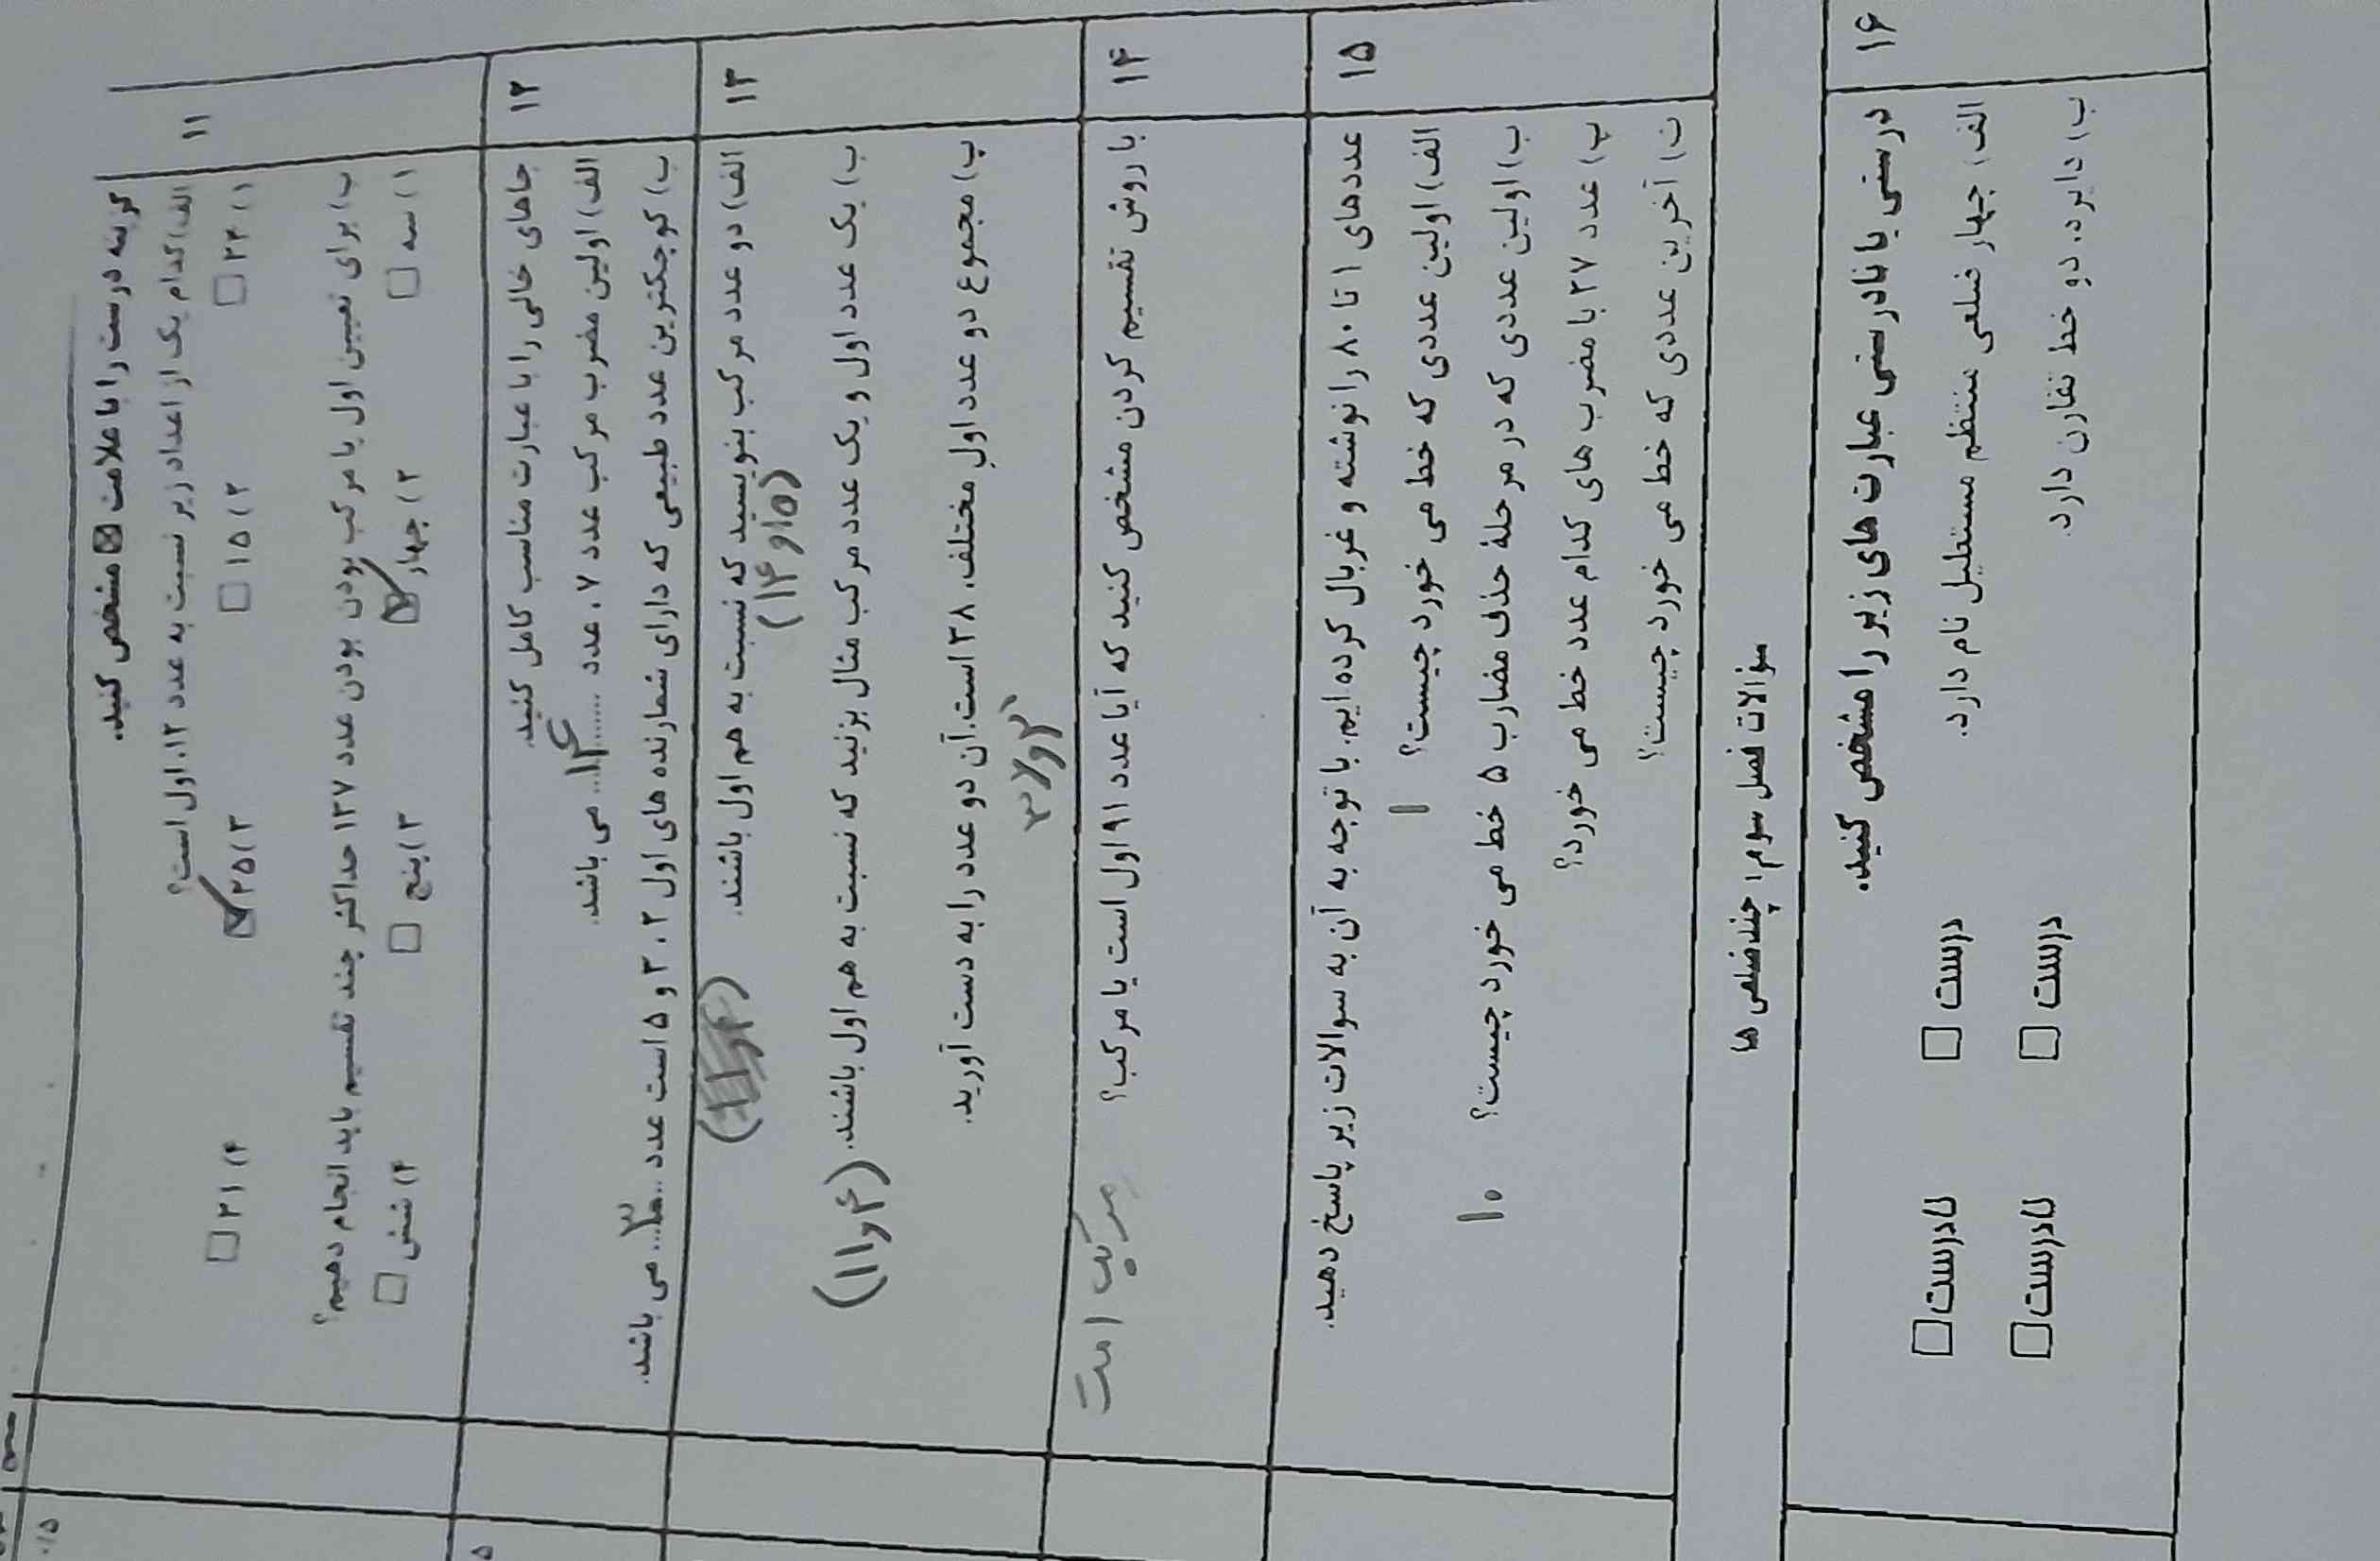 ۱۱
گزینه درست را با علامت ☒ مشخص کنید.
الف) کدام یک از اعداد زیر نسبت به عدد ۱۲، اول است؟
۱) ۲۴ □ ۲) ۱۵ □ ۳) ۲۵ ☑ ۴) ۲۱ □
ب) برای تعیین اول یا مرکب بودن بودن عدد ۱۳۷ حداکثر چند تقسیم باید انجام دهیم؟
۱) سه □ ۲) چهار ☑ ۳) پنج □ ۴) شش □
۱۲
جاهای خالی را با عبارت مناسب کامل کنید.
الف) اولین مضرب مرکب عدد ۷، عدد ...۱۴... می باشد.
ب) کوچکترین عدد طبیعی که دارای شمارنده های اول ۲، ۳ و ۵ است عدد ...۳۰... می باشد.
۱۳
الف) دو عدد مرکب بنویسید که نسبت به هم اول باشند.
(۱۵ و ۱۴)
ب) یک عدد اول و یک عدد مرکب مثال بزنید که نسبت به هم اول باشند. (۴ و ۱۱)
پ) مجموع دو عدد اولِ مختلف، ۳۸ است. آن دو عدد را به دست آورید.
۱۴
با روش تقسیم کردن مشخص کنید که آیا عدد ۹۱ اول است یا مرکب؟ مرکب است
۱۵
عددهای ۱ تا ۸۰ را نوشته و غربال کرده ایم. با توجه به آن به سوالات زیر پاسخ دهید.
الف) اولین عددی که خط می خورد چیست؟ ۱
ب) اولین عددی که در مرحلهٔ حذف مضارب ۵ خط می خورد چیست؟ ۱۰
پ) عدد ۲۷ با مضرب های کدام عدد خط می خورد؟
ت) آخرین عددی که خط می خورد چیست؟
سؤالات فصل سوم: چندضلعی ها
۱۶
درستی یا نادرستی عبارت های زیر را مشخص کنید.
الف) چهار ضلعی منتظم مستطیل نام دارد. درست □ نادرست □
ب) دایره، دو خط تقارن دارد. درست □ نادرست □
۰/۵
۵